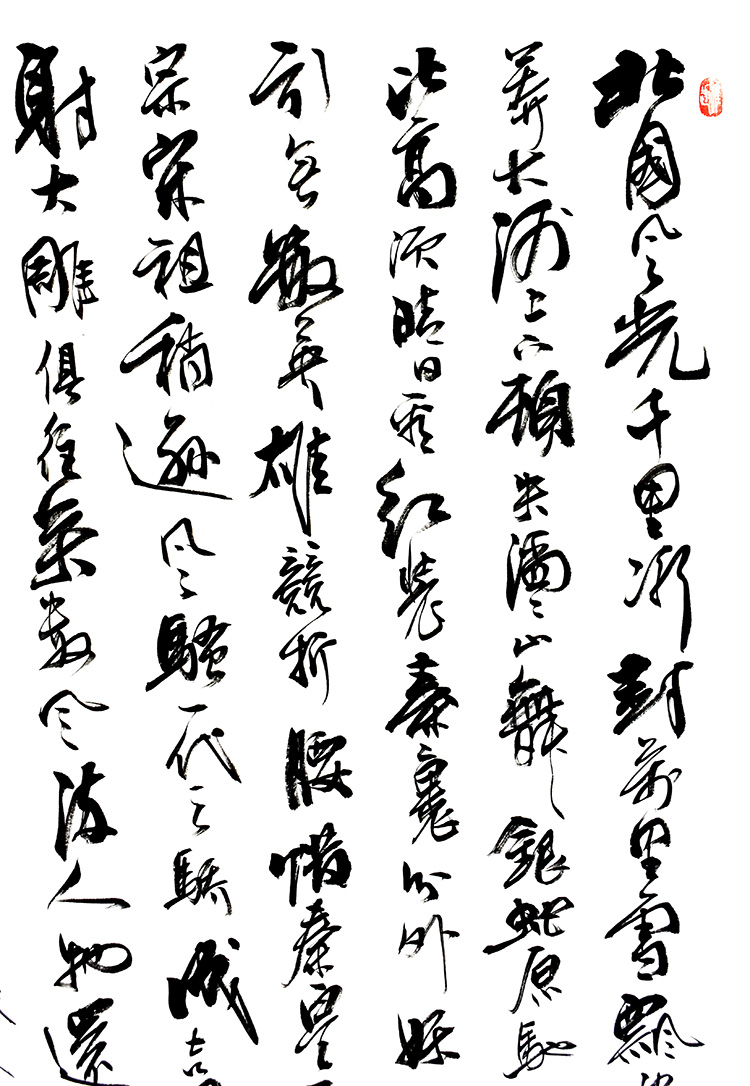 北國風光千里冰封萬里雪飄
莽大河上下頓失滔滔山舞銀蛇原馳
比高須晴日看紅裝素裹分外妖
引無數英雄競折腰惜秦皇
宗宋祖稍遜風騷一代天驕成吉
射大雕俱往矣數風流人物還